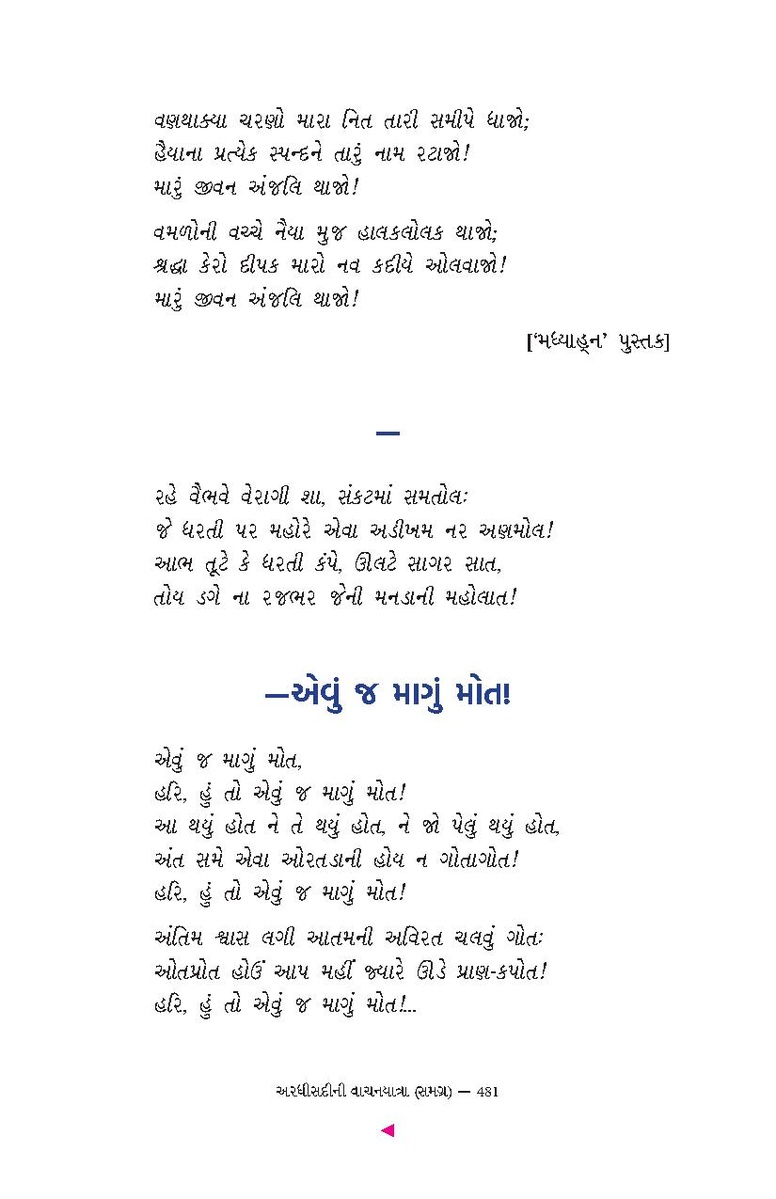 વણથાક્યા ચરણો મારા નિત તારી સમીપે ધાજો;
હૈયાના પ્રત્યેક સ્પન્દને તારું નામ રટાજો!
મારું જીવન અંજલિ થાજો!
વમળોની વચ્ચે નૈયા મુજ હાલકલોલક થાજો;
શ્રદ્ધા કેરો દીપક મારો નવ કદીયે ઓલવાજો!
મારું જીવન અંજલિ થાજો!
[‘મધ્યાહ્ન’ પુસ્તક]
—
રહે વૈભવે વેરાગી શા, સંકટમાં સમતોલઃ
જે ધરતી પર મહોરે એવા અડીખમ નર અણમોલ!
આભ તૂટે કે ધરતી કંપે, ઊલટે સાગર સાત,
તોય ડગે ના રજભર જેની મનડાની મહોલાત!
—એવું જ માગું મોત!
એવું જ માગું મોત,
હરિ, હું તો એવું જ માગું મોત!
આ થયું હોત ને તે થયું હોત, ને જો પેલું થયું હોત,
અંત સમે એવા ઓરતડાની હોય ન ગોતાગોત!
હરિ, હું તો એવું જ માગું મોત!
અંતિમ શ્વાસ લગી આતમની અવિરત ચલવું ગોતઃ
ઓતપ્રોત હોઉં આપ મહીં જ્યારે ઊડે પ્રાણ-કપોત!
હરિ, હું તો એવું જ માગું મોત!...
અરધીસદીની વાચનયાત્રા (સમગ્ર) — 481